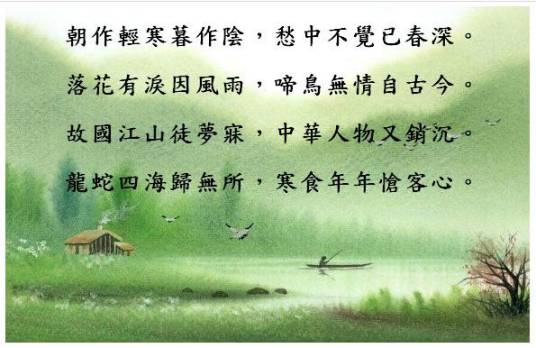 朝作輕寒暮作陰，愁中不覺已春深。
落花有淚因風雨，啼鳥無情自古今。
故國江山徒夢寐，中華人物又銷沉。
龍蛇四海歸無所，寒食年年愴客心。